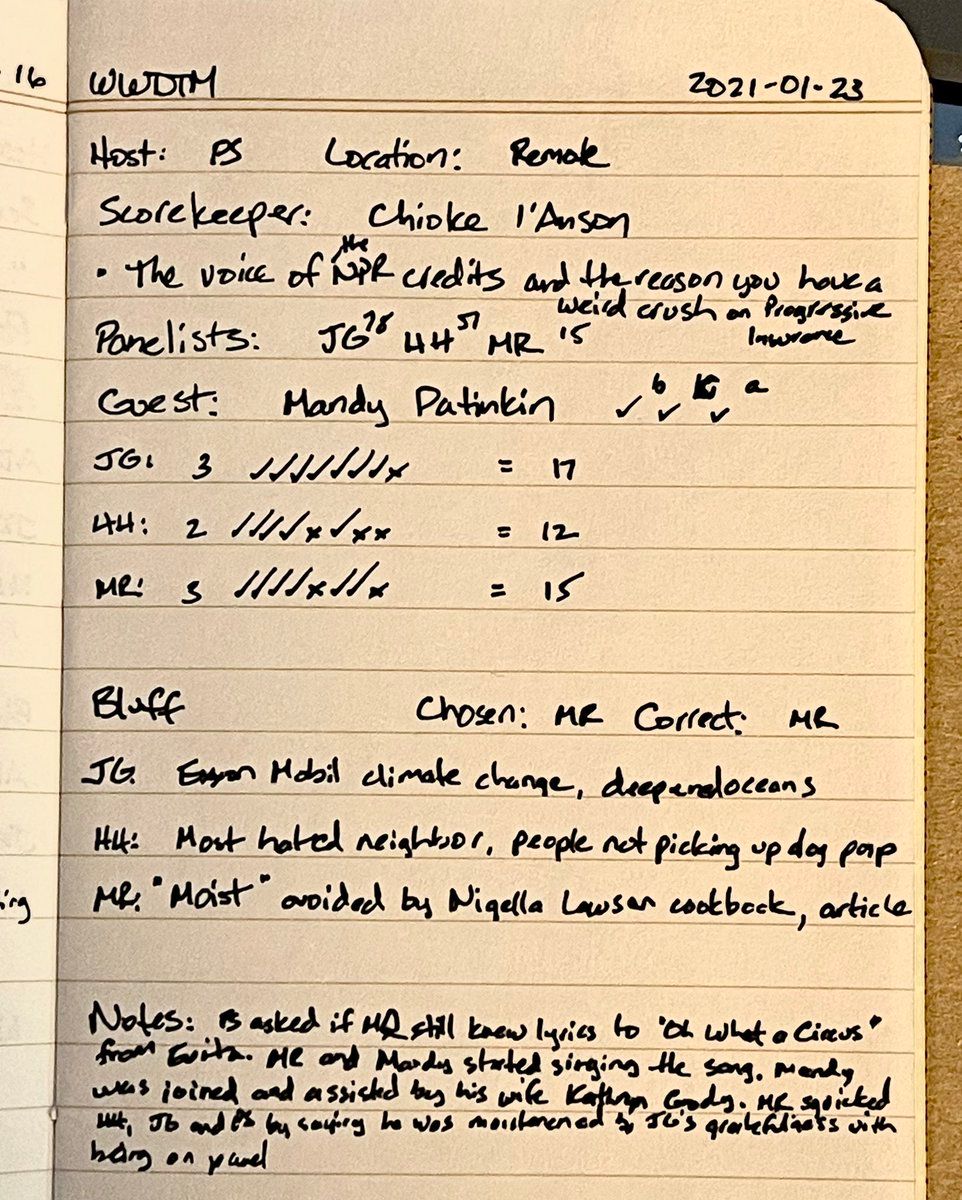 16
WWDTM 2021-01-23
Host: PS Location: Remote
Scorekeeper: Chioke I'Anson
the
• The voice of NPR credits and the reason you have a
weird crush on Progressive
Insurance
Panelists: JG 78 HH 57 MR 15
Guest: Mandy Patinkin ✓ b ✓ ✓ a
JG: 3 ✓✓✓✓✓✓✓x = 17
HH: 2 ✓✓✓✓x✓xx = 12
MR: 3 ✓✓✓✓x✓✓x = 15
Bluff Chosen: MR Correct: MR
JG: Exxon Mobil climate change, deepened oceans
HH: Most hated neighbor, people not picking up dog poop
MR: "Moist" avoided by Nigella Lawson cookbook, article
Notes: PS asked if MR still knew lyrics to "Oh What a Circus"
from Evita. MR and Mandy started singing the song. Mandy
was joined and assisted by his wife Kathryn Grody. MR squicked
HH, JG and PS by saying he was moistened by JG's gratefulness with
being on panel